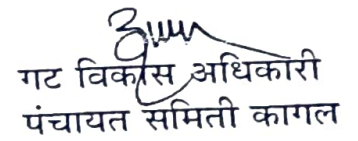 गट विकास अधिकारी
पंचायत समिती कागल